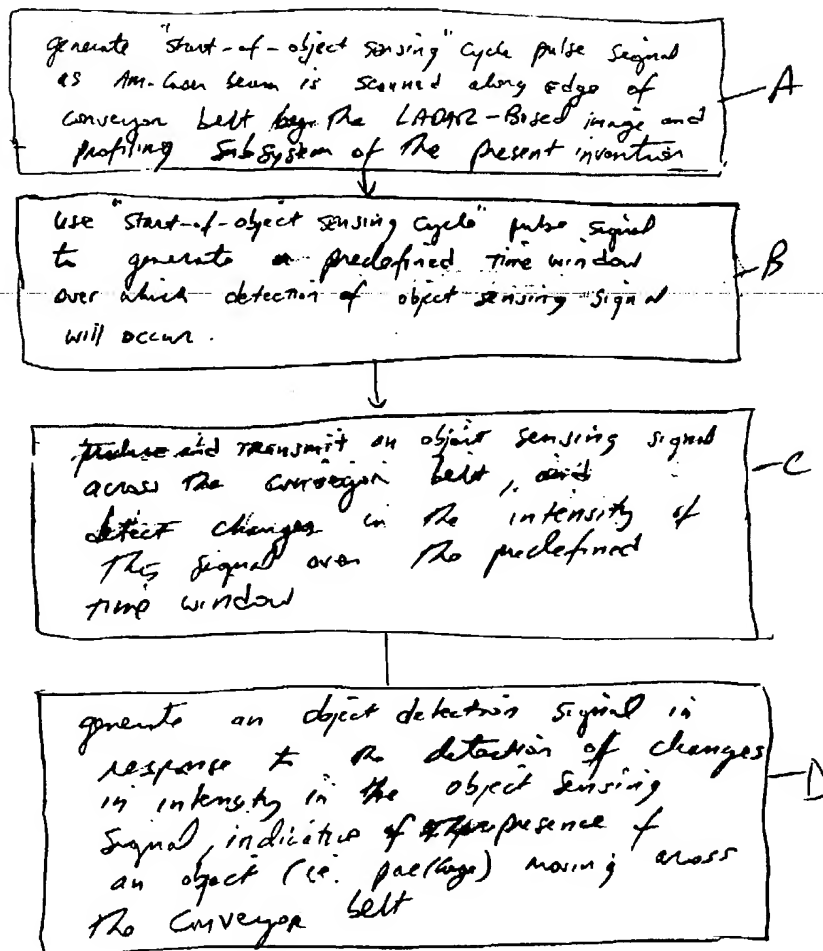 generate "start-of-object sensing" cycle pulse signal
as AM-laser beam is scanned along edge of
conveyor belt by the LADAR-Based image and
profiling subsystem of the present invention
A
use "start-of-object sensing cycle" pulse signal
to generate a predefined time window
over which detection of object sensing signal
will occur.
B
produce and transmit an object sensing signal
across the conveyor belt, and
detect changes in the intensity of
this signal over the predefined
time window
C
generate an object detection signal in
response to the detection of changes
in intensity in the object sensing
signal, indicative of the presence of
an object (ie. package) moving across
the conveyor belt
D